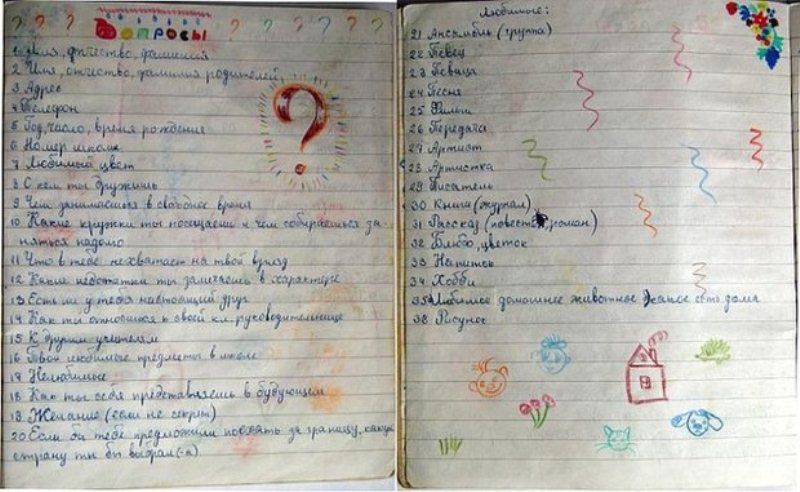 Вопросы
1 Имя, отчество, фамилия
2 Имя, отчество, фамилия родителей
3 Адрес
4 Телефон
5 Год, число, время рождения
6 Номер школы
7 Любимый цвет
8 С кем ты дружишь
9 Чем занимаешься в свободное время
10 Какие кружки ты посещаешь и чем собираешься за
няться надолго
11 Что в тебе не хватает на твой взгляд
12 Какие недостатки ты замечаешь в характере
13 Есть ли у тебя настоящий друг
14 Как ты относишся к своей кл. руководительнице
15 К другим учителям
16 Твои любимые предметы в школе
17 Нелюбимые
18 Как ты себя представляешь в будующем
19 Желание (если не секрет)
20 Если бы тебе предложили поехать за границу, какую
страну ты бы выбрал(-а)
Любимые:
21 Ансамбль (группа)
22 Певец
23 Певица
24 Песня
25 Фильм
26 Передача
27 Артист
28 Артистка
29 Писатель
30 Книги (журнал)
31 Рассказ (повесть, роман)
32 Блюдо, цветок
33 Напиток
34 Хобби
35 Любимое домашнее животное какое есть дома
36 Рисунок